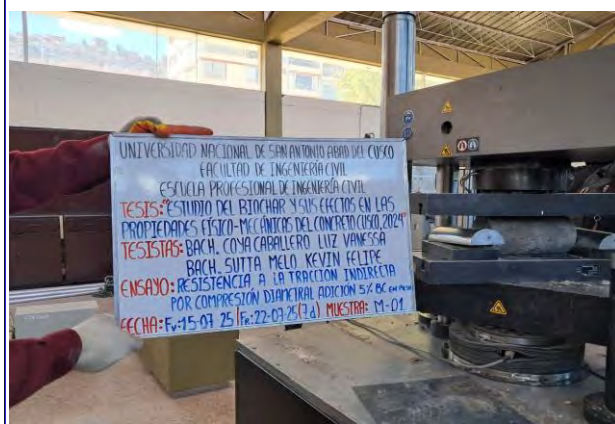 UNIVERSIDAD NACIONAL DE SAN ANTONIO ABAD DEL CUSCO
FACULTAD DE INGENIERÍA CIVIL
ESCUELA PROFESIONAL DE INGENIERÍA CIVIL
TESIS: "ESTUDIO DEL BIOCHAR Y SUS EFECTOS EN LAS
PROPIEDADES FÍSICO-MECÁNICAS DEL CONCRETO CUSCO, 2024"
TESISTAS: BACH. COYA CABALLERO LUZ VANESSA
BACH. SUTTA MELO KEVIN FELIPE
ENSAYO: RESISTENCIA A LA TRACCIÓN INDIRECTA
POR COMPRESIÓN DIAMETRAL ADICIÓN 5% BC EN PESO
FECHA: Fv:15-07-25 | Fr:22-07-25(7d) MUESTRA: M-01